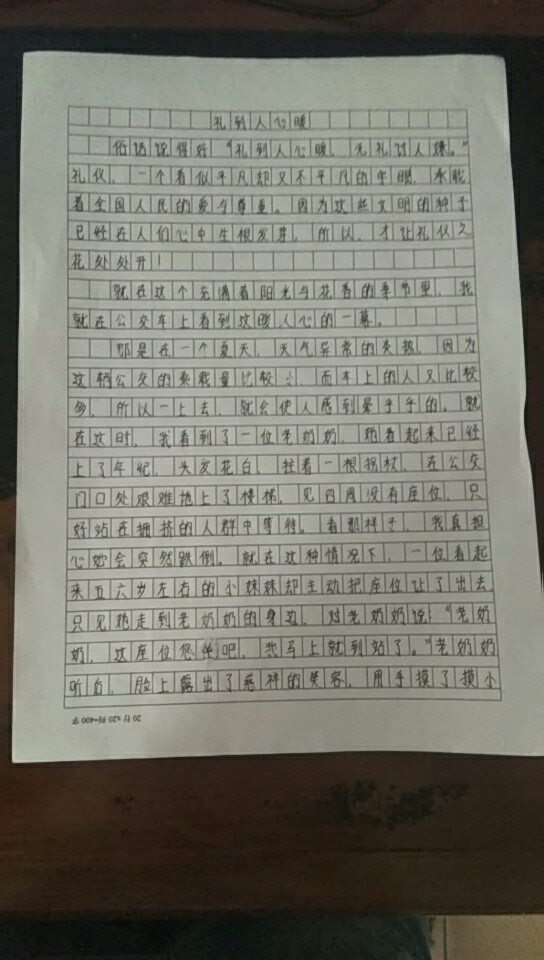 礼到人心暖
俗话说得好“礼到人心暖，无礼讨人嫌。”
礼仪，一个看似平凡却又不平凡的字眼，承载
着全国人民的爱与尊重。因为这些文明的种子
已经在人们心中生根发芽，所以，才让礼仪之
花处处开！
就在这个充满着阳光与花香的季节里，我
就在公交车上看到这暖人心的一幕。
那是在一个夏天，天气异常的炎热，因为
这辆公交的乘载量比较小，而车上的人又比较
多，所以一上去，就会使人感到晕乎乎的。就
在这时，我看到了一位老奶奶，她看起来已经
上了年纪，头发花白，拄着一根拐杖，在公交
门口处艰难地上了楼梯，见四周没有座位，只
好站在拥挤的人群中等待。看那样子，我真担
心她会突然跌倒。就在这种情况下，一位看起
来五六岁左右的小妹妹却主动把座位让了出去，
只见她走到老奶奶的身边，对老奶奶说：“老奶
奶，这座位您坐吧，我马上就到站了。”老奶奶
听后，脸上露出了慈祥的笑容，用手摸了摸小
20行×20列=400字